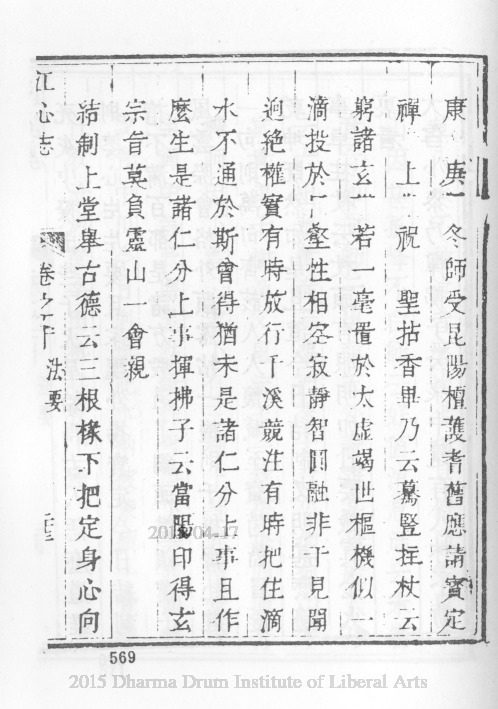 康庚冬師受昆陽檀護耆舊應請寶定
禪上祝聖拈香畢乃云驀豎拄杖云
窮諸玄若一毫置於太虛竭世樞機似一
滴投於壑性相空寂靜智圓融非干見聞
逈絕權實有時放行千溪競注有時把住滴
水不通於斯會得猶未是諸仁分上事且作
麼生是諸仁分上事揮拂子云當陽印得玄
宗旨莫負靈山一會親
結制上堂舉古德云三根椽下把定身心向
江心志 卷之十 法要
2015-04-17
569
2015 Dharma Drum Institute of Liberal Arts